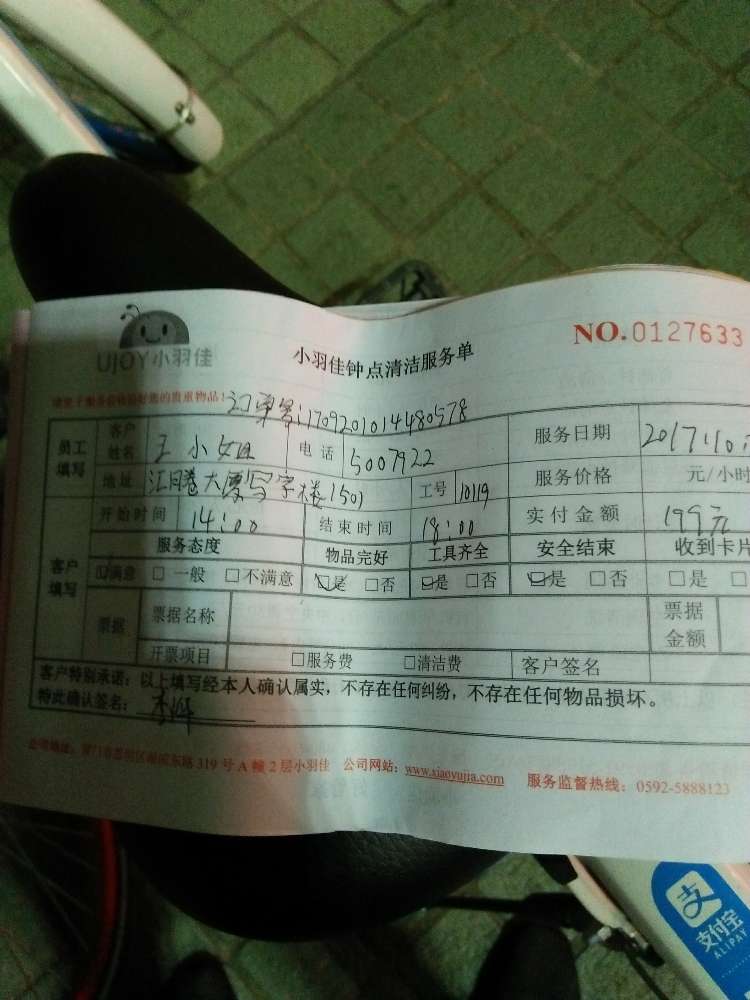 UJOY小羽佳
小羽佳钟点清洁服务单
NO.0127633
订单号:1709201014480578
员工填写 客户姓名 王小姐 电话 5007922 服务日期 2017.10.
地址 大厦写字楼1501 工号 10119 服务价格 元/小时
客户填写 开始时间 14:00 结束时间 18:00 实付金额 199元
服务态度 物品完好 工具齐全 安全结束 收到卡片
☑满意 □一般 □不满意 ☑是 □否 ☑是 □否 ☑是 □否 □是 □
票据 票据名称 票据金额
开票项目 □服务费 □清洁费 客户签名
客户特别承诺：以上填写经本人确认属实，不存在任何纠纷，不存在任何物品损坏。
特此确认签名：
公司地址： 东路319号A幢2层小羽佳 公司网站：www.xiaoyujia.com 服务监督热线：0592-5888123
支付宝
ALIPAY